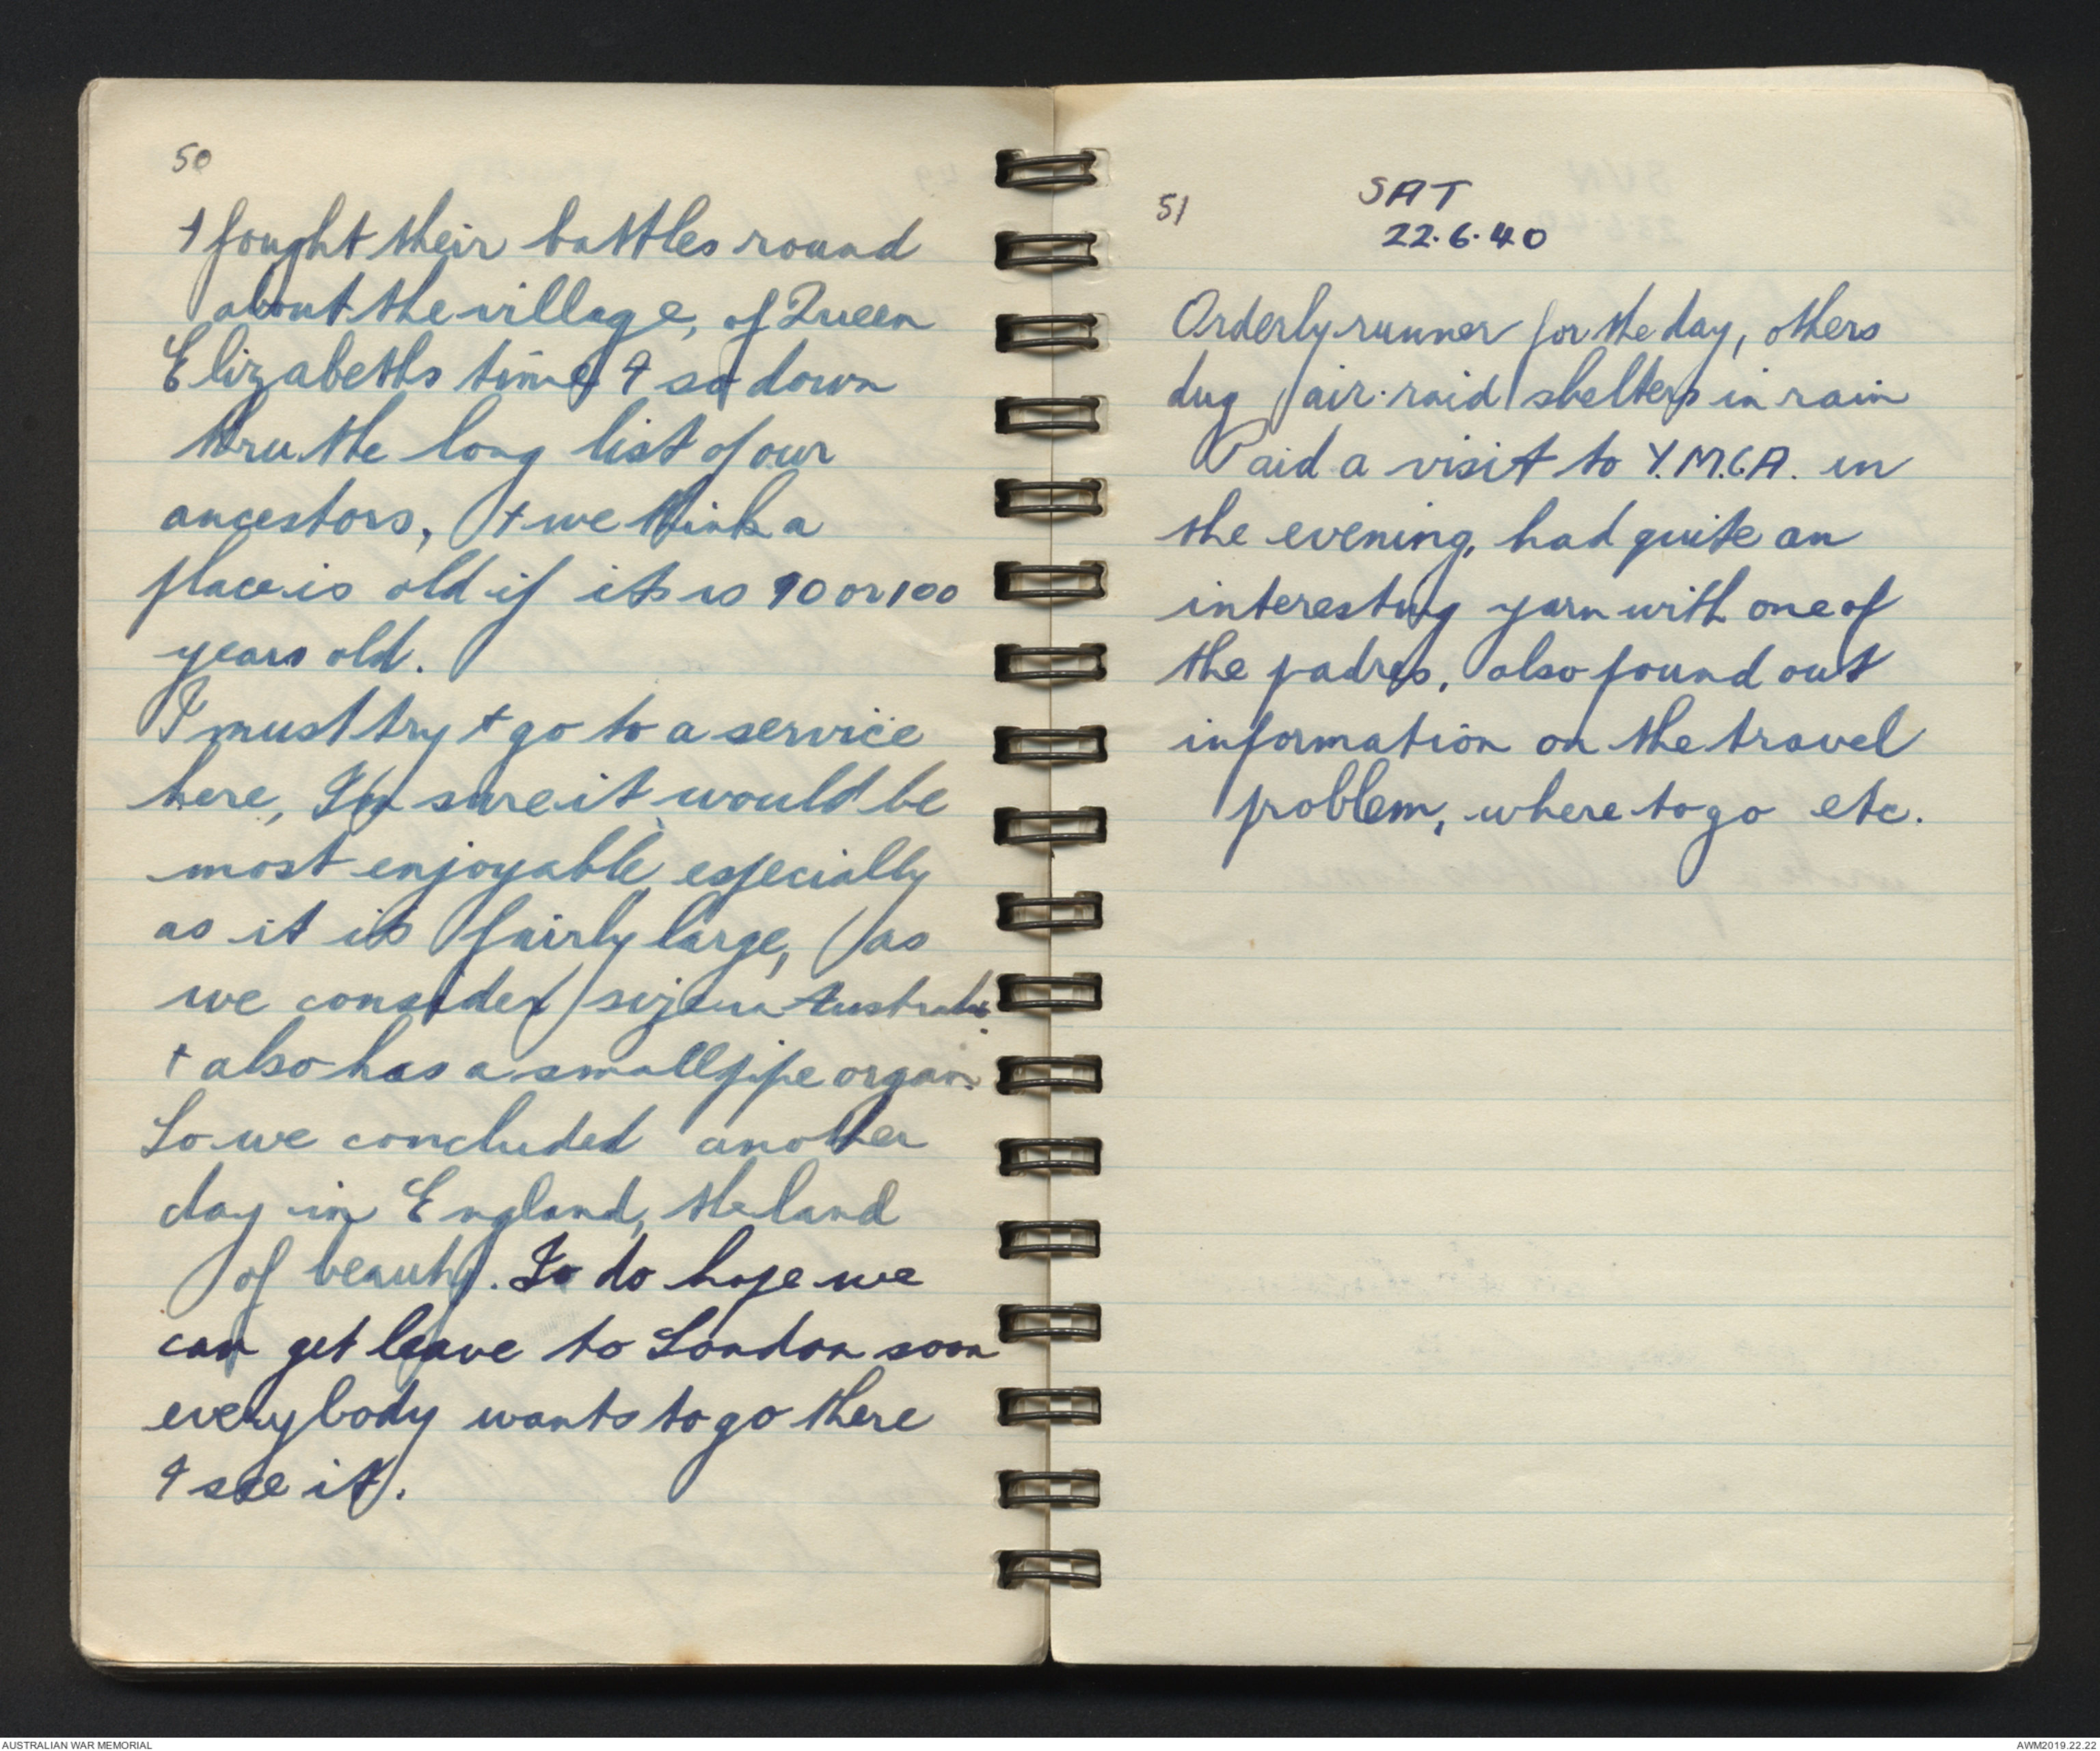 50
+ fought their battles round
about the village, of Queen
Elizabeths time & so down
thru the long list of our
ancestors, + we think a
place is old if its is 90 or 100
years old.
I must try + go to a service
here, I'm sure it would be
most enjoyable, especially
as it is fairly large, (as
we consider) size in Australia.
+ also has a small pipe organ.
So we concluded another
day in England, the land
of beauty. I do hope we
can get leave to London soon
everybody wants to go there
& see it.
51
SAT
22.6.40
Orderly runner for the day, others
dug air-raid shelters in rain
Paid a visit to Y.M.C.A. in
the evening, had quite an
interesting yarn with one of
the padres, also found out
information on the travel
problem, where to go etc.
AUSTRALIAN WAR MEMORIAL
AWM2019.22.22